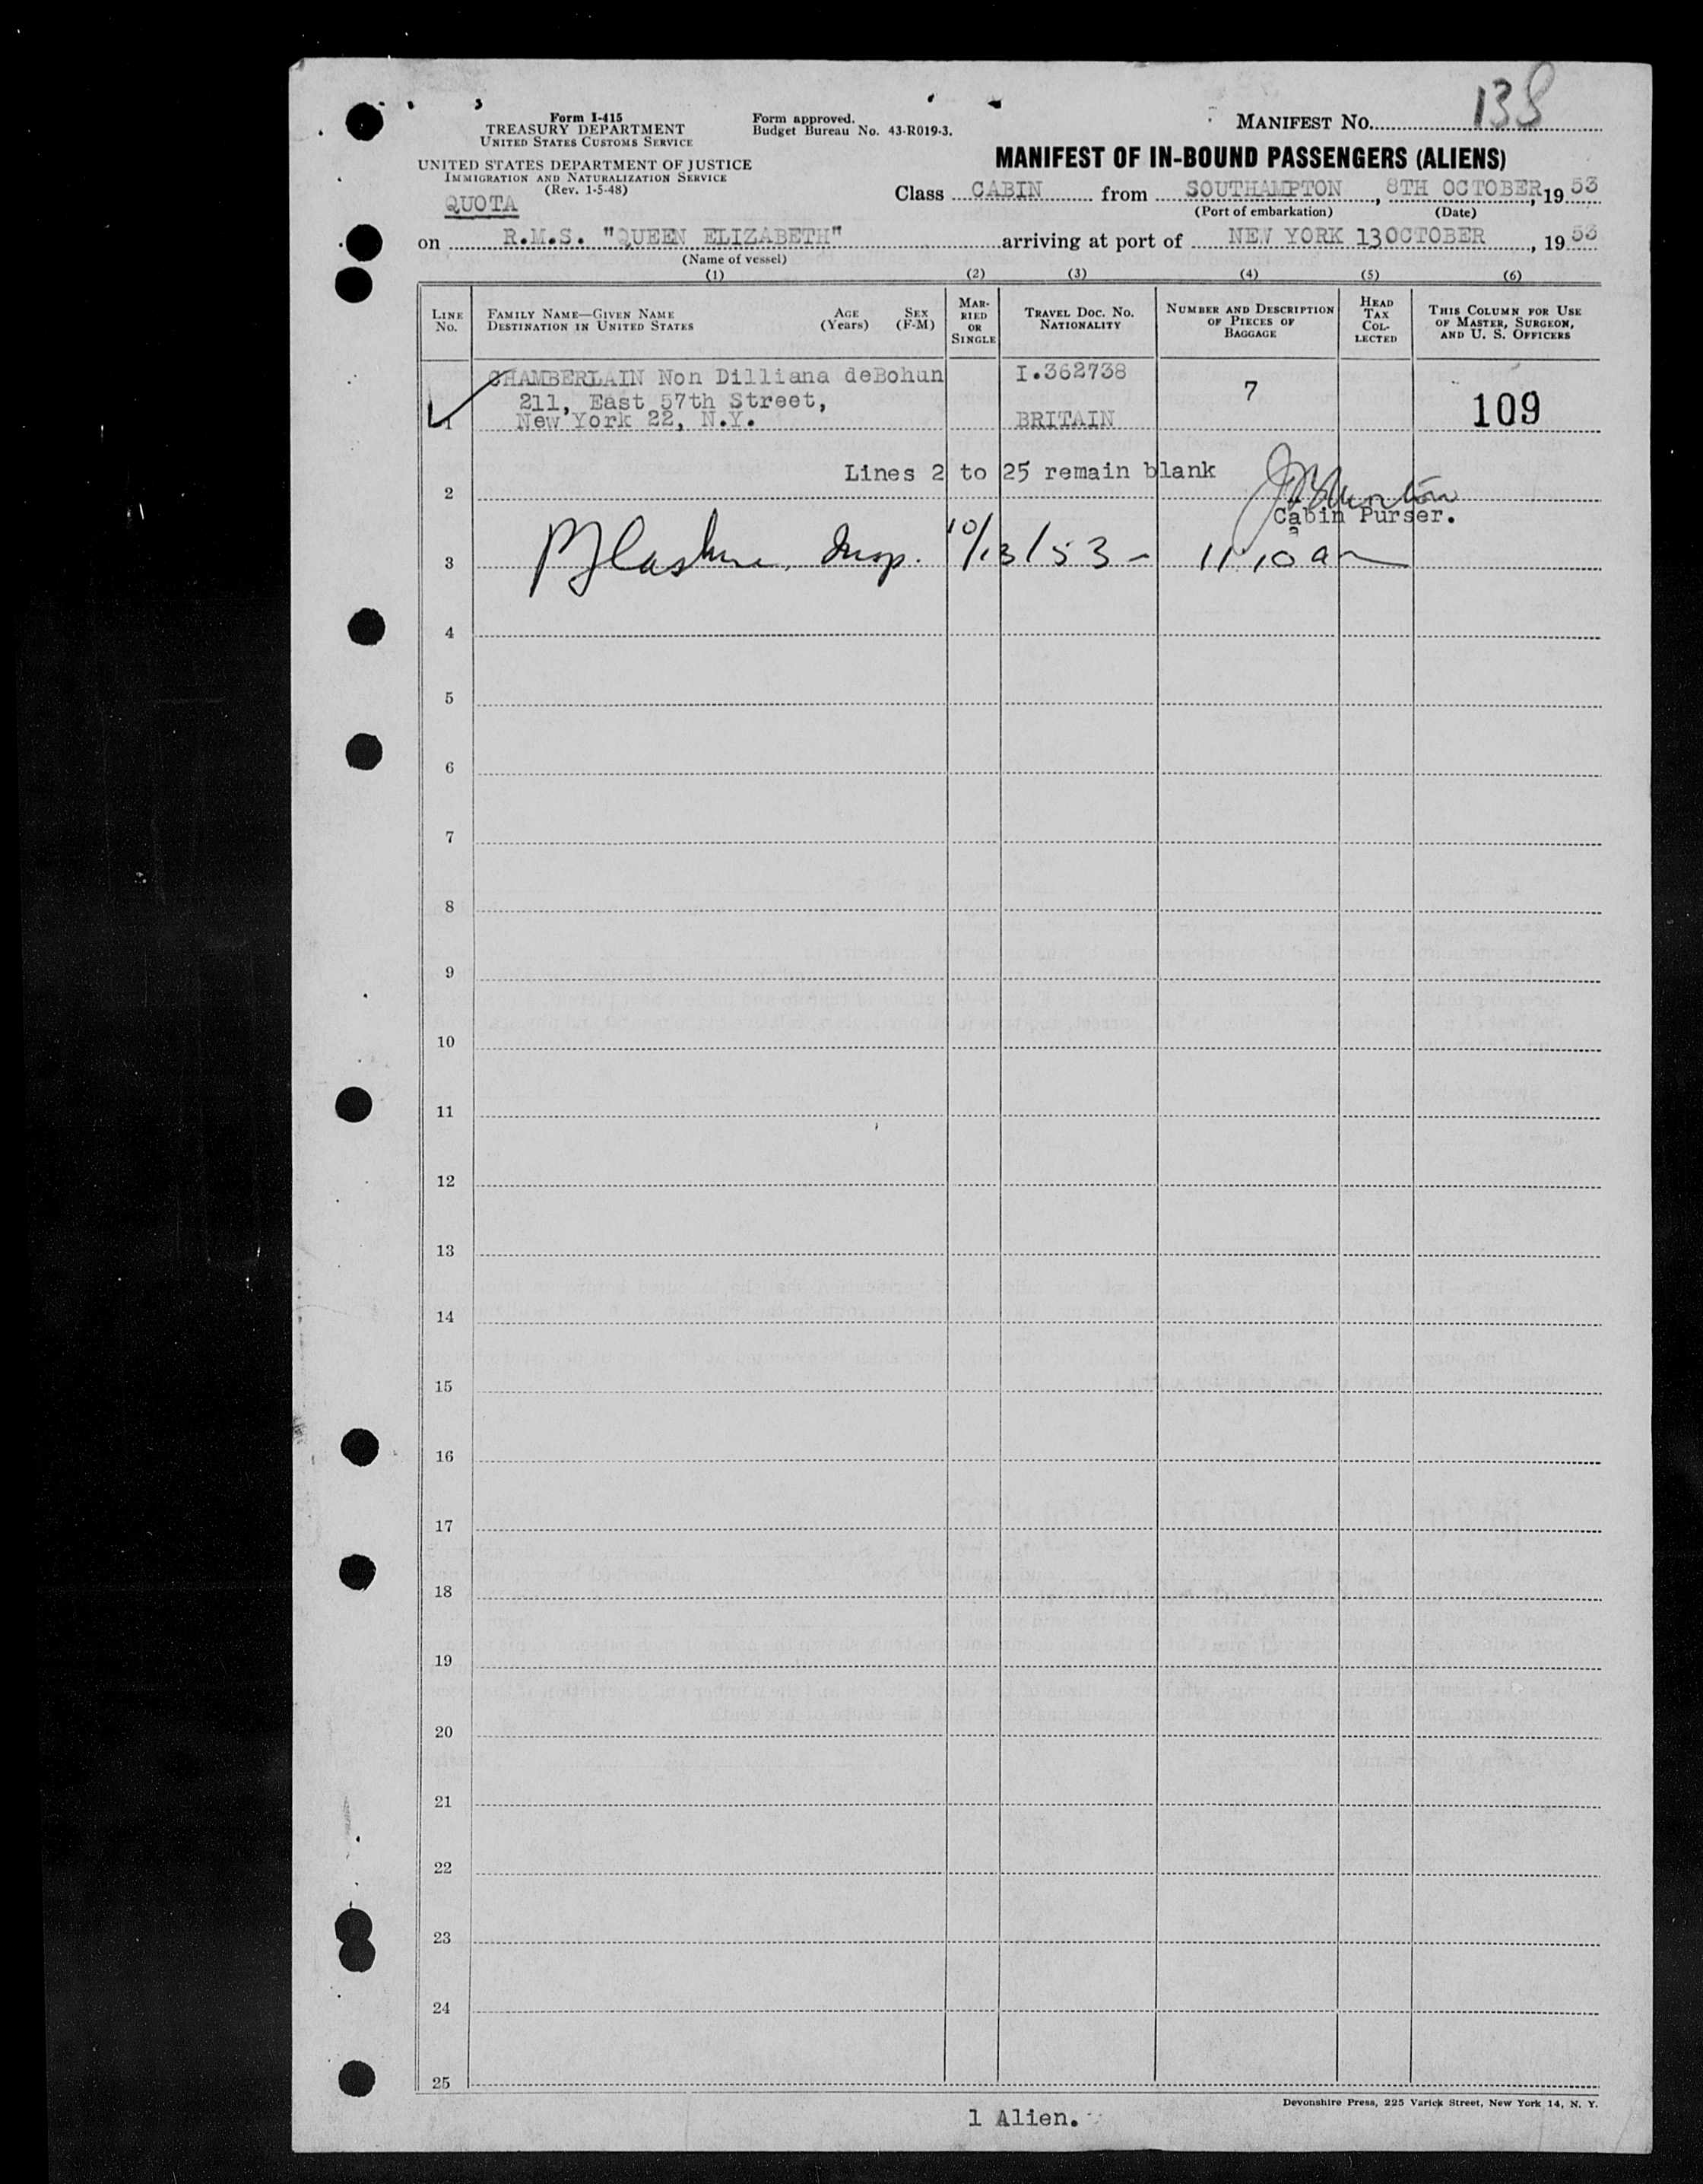 138
Form I-415
TREASURY DEPARTMENT
UNITED STATES CUSTOMS SERVICE
UNITED STATES DEPARTMENT OF JUSTICE
IMMIGRATION AND NATURALIZATION SERVICE
(Rev. 1-5-48)
QUOTA
Form approved.
Budget Bureau No. 43-R019-3.
MANIFEST NO.
MANIFEST OF IN-BOUND PASSENGERS (ALIENS)
Class CABIN from SOUTHAMPTON, 8TH OCTOBER, 1953
(Port of embarkation) (Date)
on R.M.S. "QUEEN ELIZABETH" arriving at port of NEW YORK 13OCTOBER, 1953
(Name of vessel)
(1) (2) (3) (4) (5) (6)
LINE NO.
FAMILY NAME—GIVEN NAME
DESTINATION IN UNITED STATES
AGE (Years)
SEX (F-M)
MARRIED OR SINGLE
TRAVEL DOC. NO.
NATIONALITY
NUMBER AND DESCRIPTION OF PIECES OF BAGGAGE
HEAD TAX COLLECTED
THIS COLUMN FOR USE OF MASTER, SURGEON, AND U. S. OFFICERS
CHAMBERLAIN Non Dilliana deBohun I.362738
211, East 57th Street, 7 109
1 New York 22, N.Y. BRITAIN
Lines 2 to 25 remain blank
2
Cabin Purser.
3 Insp. 10/13/53 - 11:10 am
4
5
6
7
8
9
10
11
12
13
14
15
16
17
18
19
20
21
22
23
24
25
Devonshire Press, 225 Varick Street, New York 14, N. Y.
1 Alien.